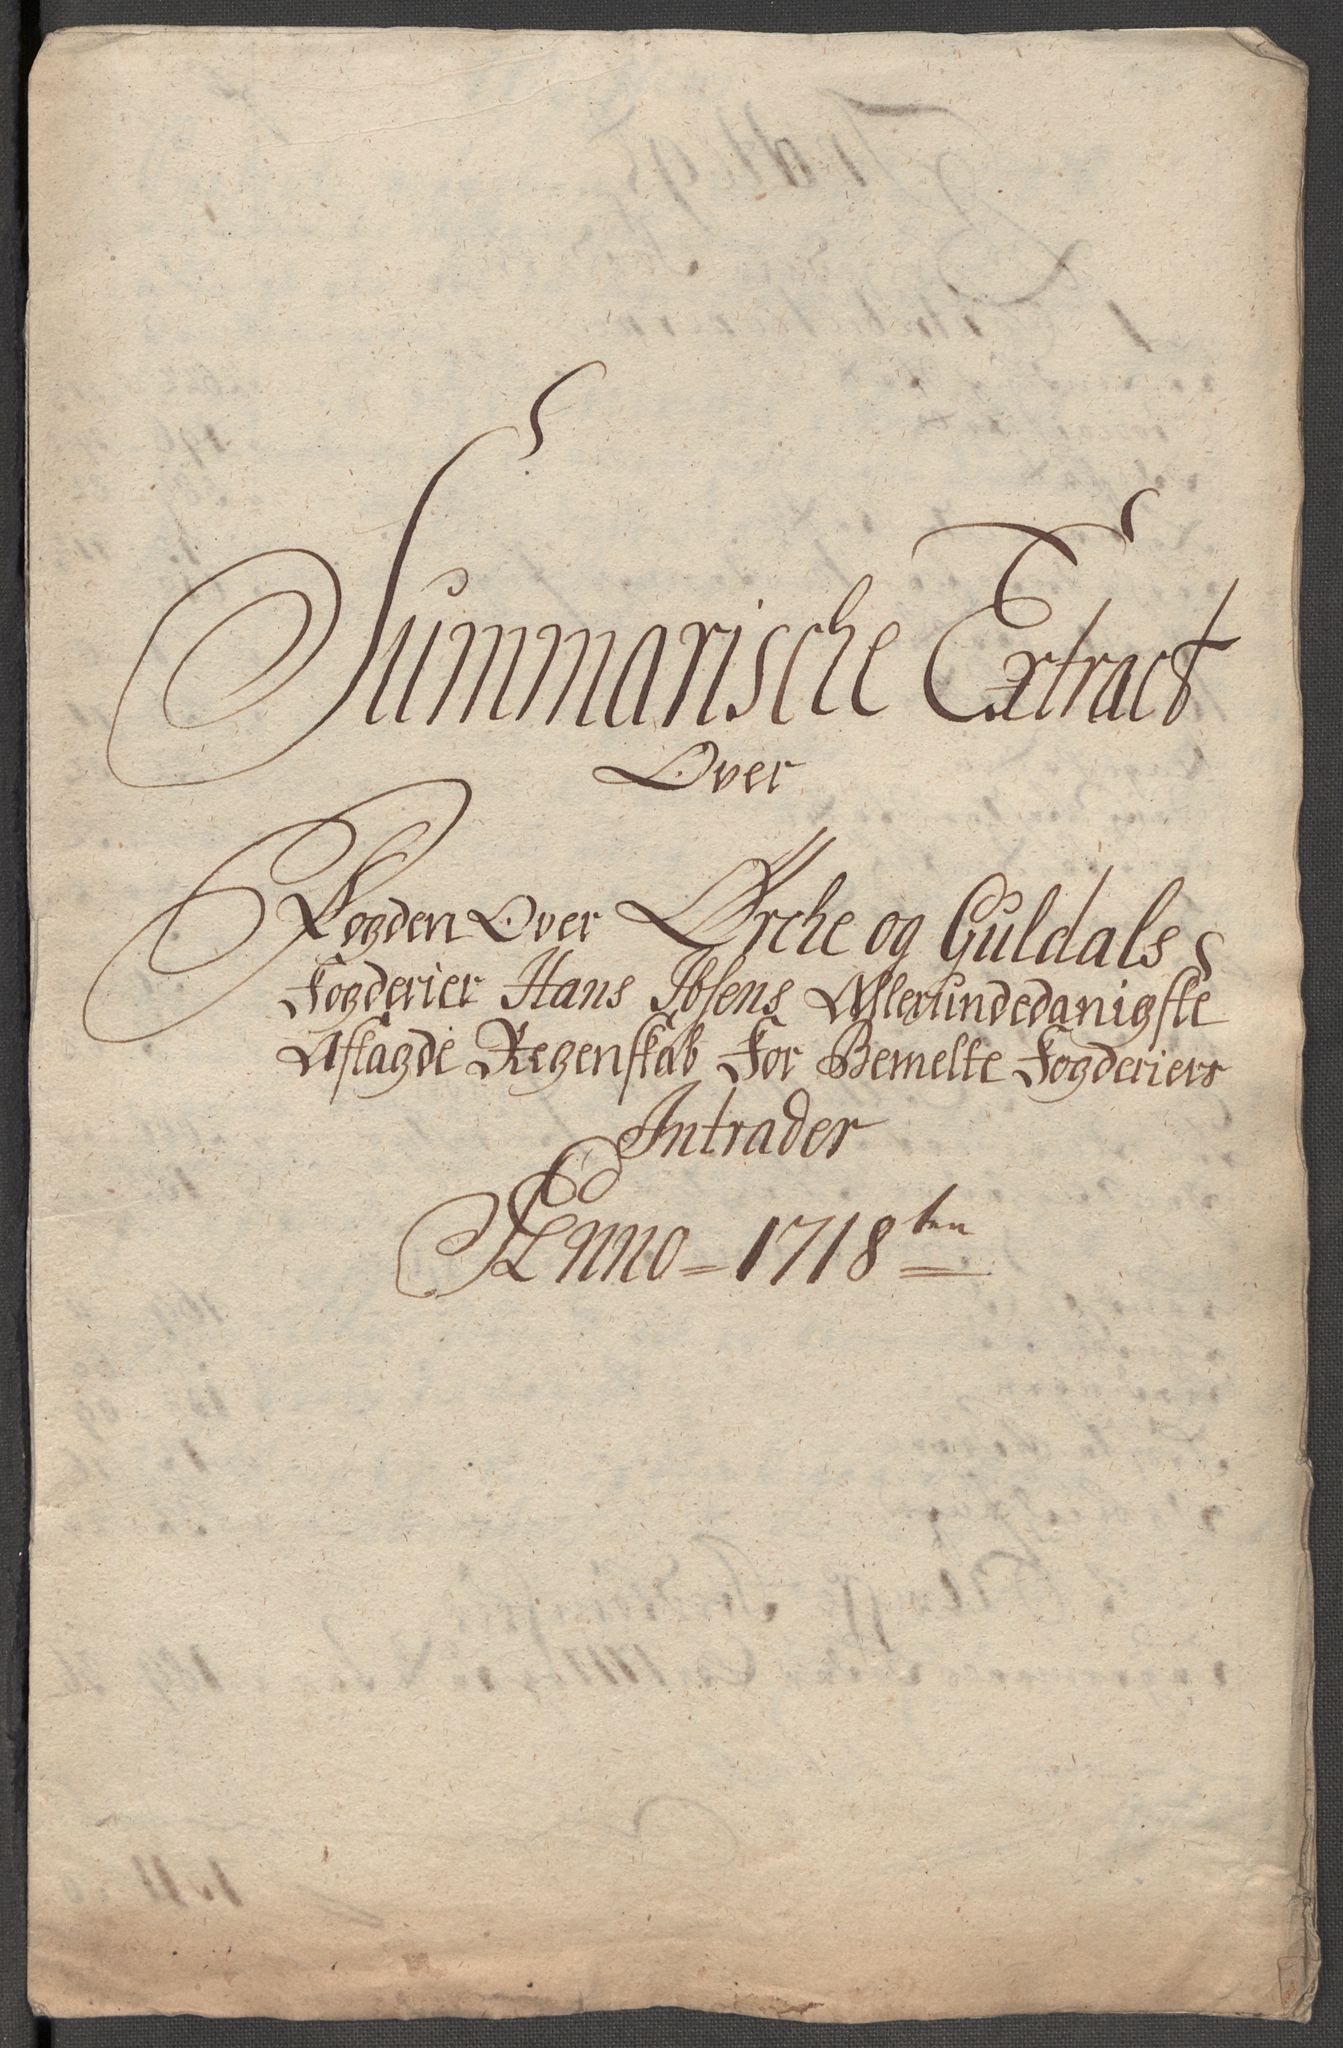 Summarische Extract
Over
Fogden Over Ørche og Guldals
Fogderier Hans Ibsens Allerundedanigste
Aflagde Regenskab For Bemelte Fogderiers
Intrader
Anno - 1718ten